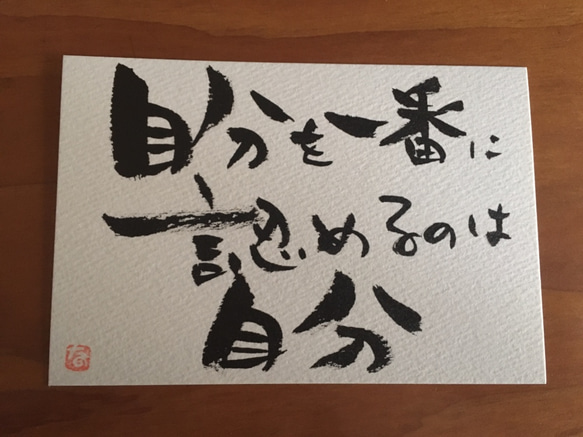 自分を一番に
認めるのは
自分